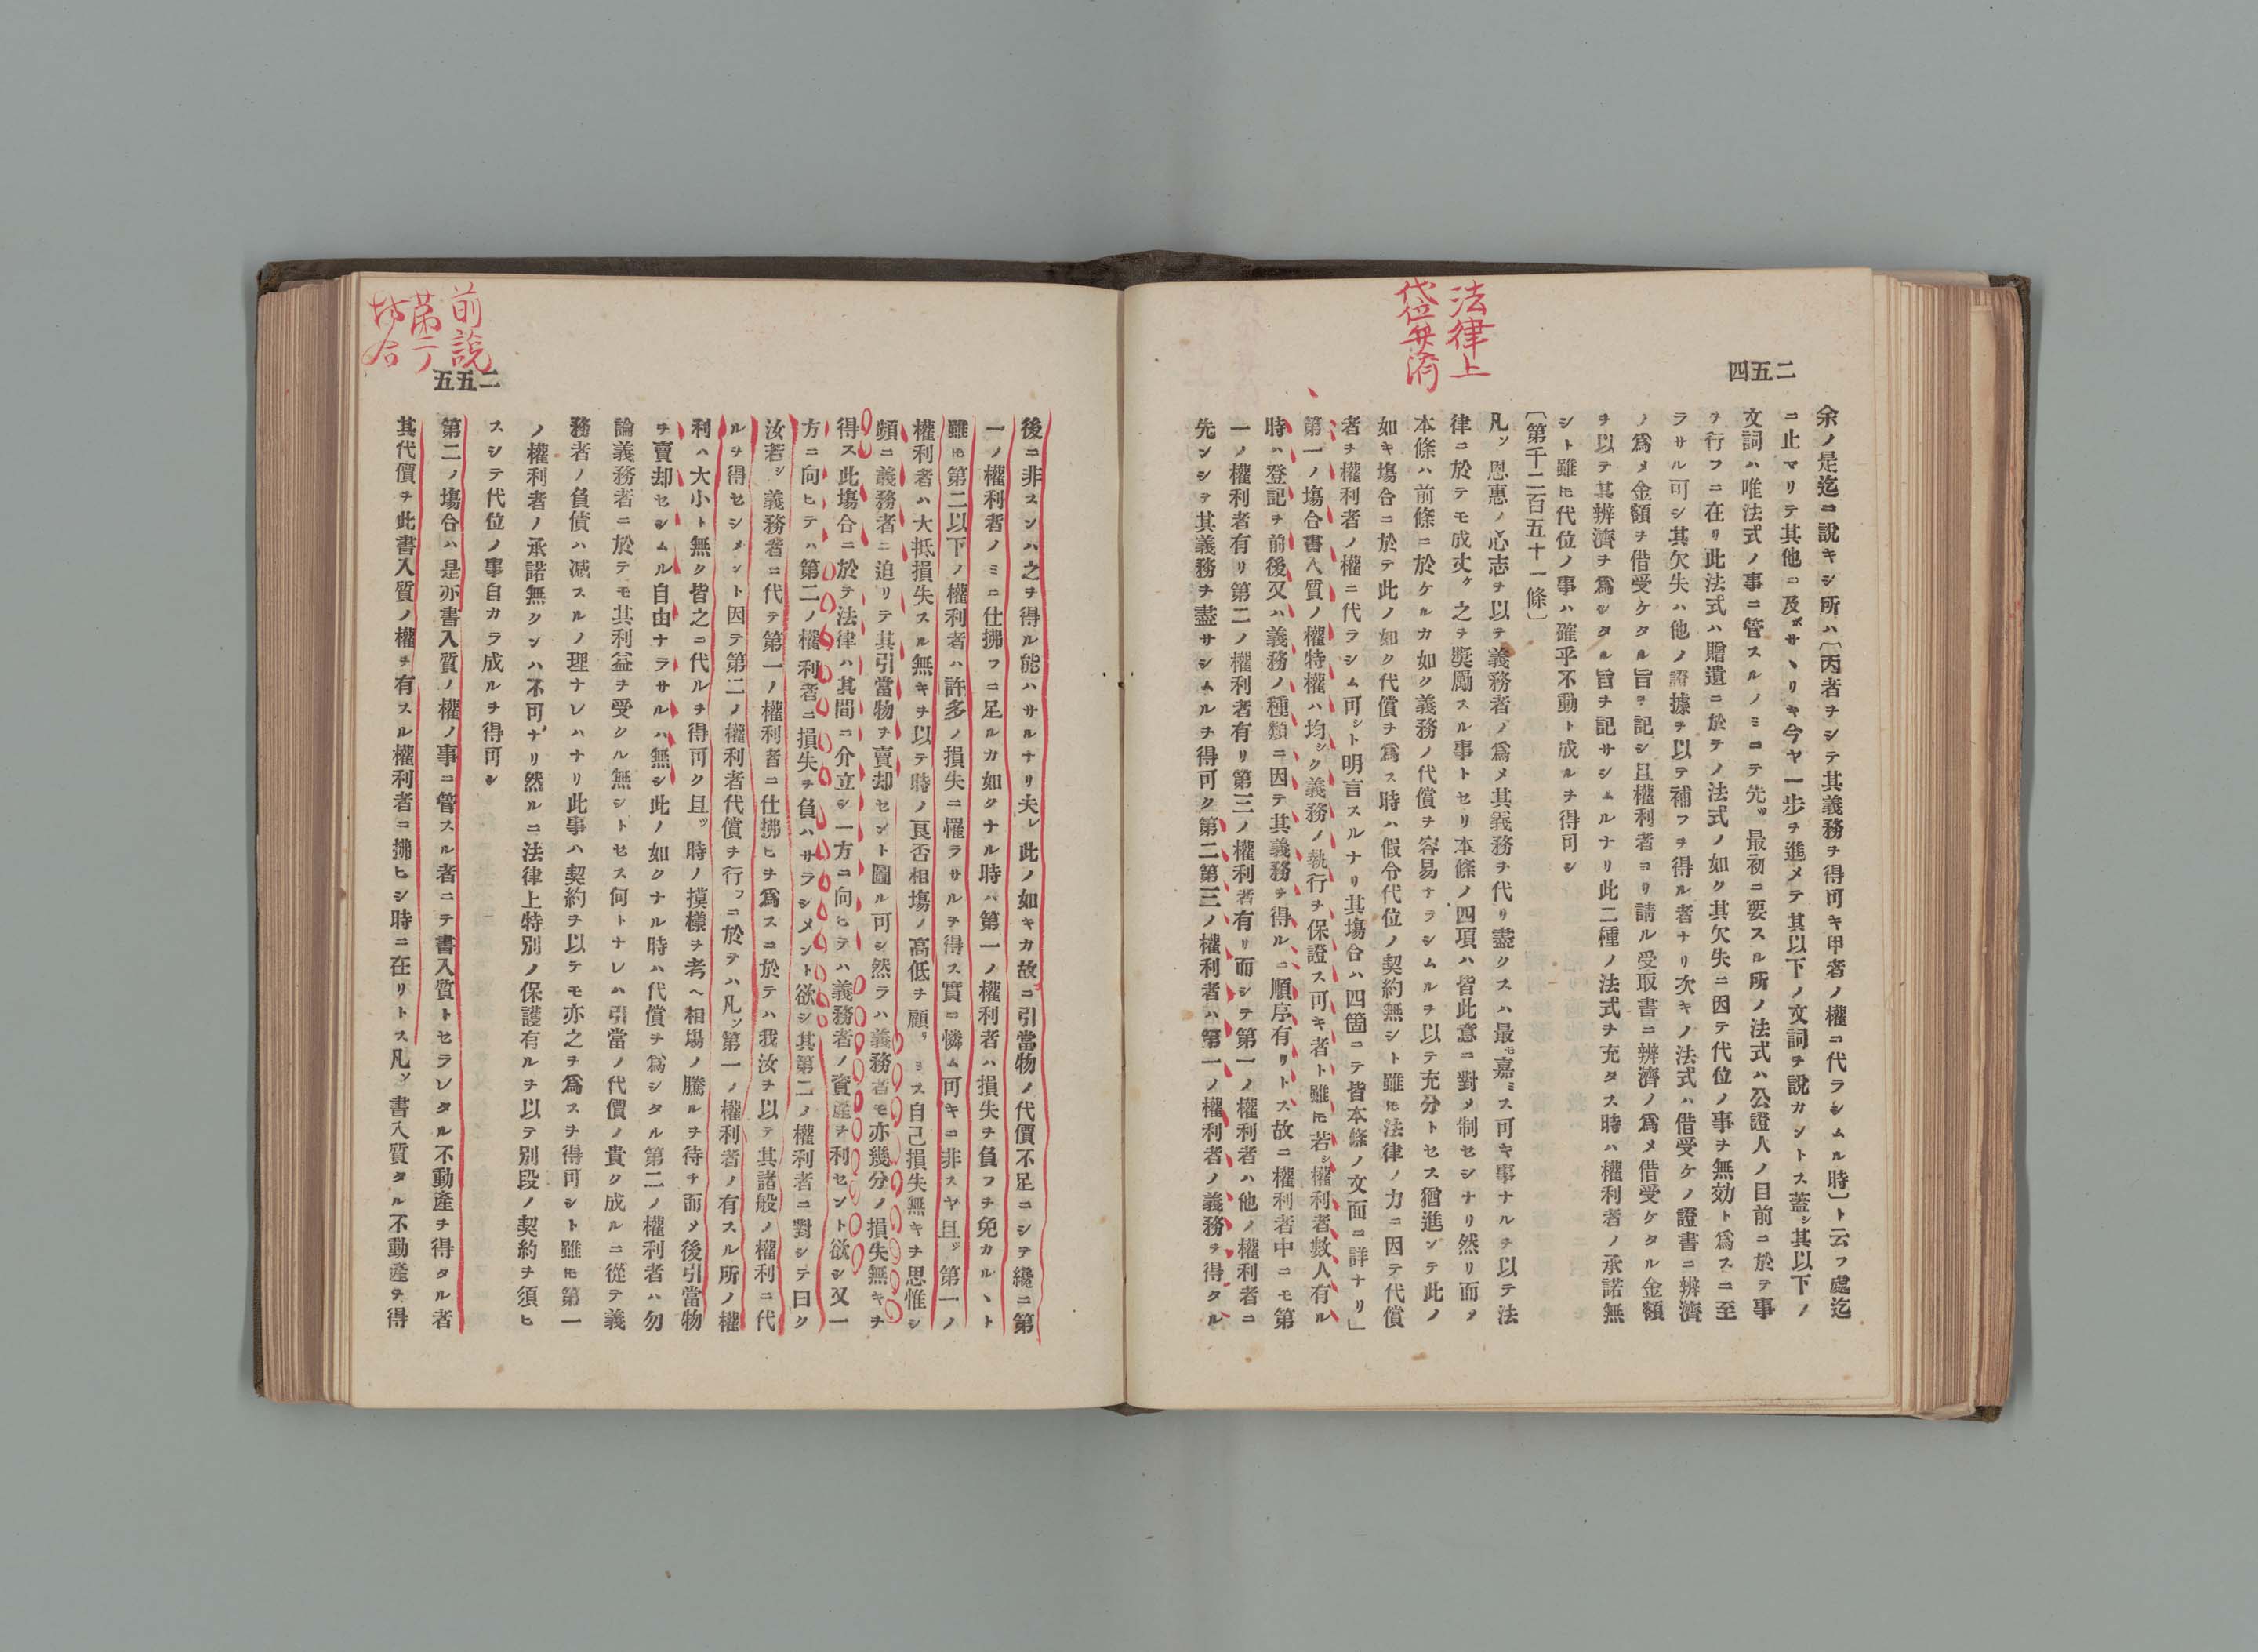 法律上
代位弁済
四五二
余ノ是迄ニ說キシ所ハ〔丙者ヲシテ其義務ヲ得可キ甲者ノ權ニ代ラシムル時〕ト云フ處迄
ニ止マリテ其他ニ及ホサヽリキ今ヤ一步ヲ進メテ其以下ノ文詞ヲ說カントス蓋シ其以下ノ
文詞ハ唯法式ノ事ニ管スルノミニテ先ッ最初ニ要スル所ノ法式ハ公證人ノ目前ニ於テ事
ヲ行フニ在リ此法式ハ贈遺ニ於テノ法式ノ如ク其欠失ニ因テ代位ノ事ヲ無効ト爲スニ至
ラサル可シ其欠失ハ他ノ證據ヲ以テ補フヲ得ル者ナリ次キノ法式ハ借受ケノ證書ニ辨濟
ノ爲メ金額ヲ借受ケタル旨ヲ記シ且權利者ヨリ請ル受取書ニ辨濟ノ爲メ借受ケタル金額
ヲ以テ其辨濟ヲ爲シタル旨ヲ記サシムルナリ此二種ノ法式ヲ充タス時ハ權利者ノ承諾無
シト雖𪜈代位ノ事ハ確乎不動ト成ルヲ得可シ
〔第千二百五十一條〕
凡ソ恩惠ノ心志ヲ以テ義務者ノ爲メ其義務ヲ代リ盡クスハ最モ嘉ミス可キ事ナルヲ以テ法
律ニ於テモ成丈ケ之ヲ奬勵スル事トセリ本條ノ四項ハ皆此意ニ對メ制セシナリ然リ而メ
本條ハ前條ニ於ケルカ如ク義務ノ代償ヲ容易ナラシムルヲ以テ充分トセス猶進ンテ此ノ
如キ塲合ニ於テ此ノ如ク代償ヲ爲ス時ハ假令代位ノ契約無シト雖𪜈法律ノ力ニ因テ代償
者ヲ權利者ノ權ニ代ラシム可シト明言スルナリ其塲合ハ四箇ニテ皆本條ノ文面ニ詳ナリ」
第一ノ塲合書入質ノ權特權ハ均シク義務ノ執行ヲ保證ス可キ者ト雖𪜈若シ權利者數人有ル
時ハ登記ヲ前後又ハ義務ノ種類ニ因テ其義務ヲ得ルニ順序有リトス故ニ權利者中ニモ第
一ノ權利者有リ第二ノ權利者有リ第三ノ權利者有リ而シテ第一ノ權利者ハ他ノ權利者ニ
先ンシテ其義務ヲ盡サシムルヲ得可ク第二第三ノ權利者ハ第一ノ權利者ノ義務ヲ得タル
前說
第二ノ
場合
五五二
後ニ非スンハ之ヲ得ル能ハサルナリ夫レ此ノ如キカ故ニ引當物ノ代價不足ニシテ纔ニ第
一ノ權利者ノミニ仕拂フニ足ルカ如クナル時ハ第一ノ權利者ハ損失ヲ負フヲ免カルヽト
雖𪜈第二以下ノ權利者ハ許多ノ損失ニ罹ラサルヲ得ス實ニ憐ム可キニ非スヤ且ッ第一ノ
權利者ハ大抵損失スル無キヲ以テ時ノ良否相塲ノ高低ヲ顧リミス自己損失無キヲ思惟シ
頻ニ義務者ニ迫リテ其引當物ヲ賣却セント圖ル可シ然ラハ義務者モ亦幾分ノ損失無キヲ
得ス此塲合ニ於テ法律ハ其間ニ介立シ一方ニ向ヒテハ義務者ノ資產ヲ利セント欲シ又一
方ニ向ヒテハ第二ノ權利者ニ損失ヲ負ハサラシメント欲シ其第二ノ權利者ニ對シテ曰ク
汝若シ義務者ニ代テ第一ノ權利者ニ仕拂ヒヲ爲スニ於テハ我汝ヲ以テ其諸般ノ權利ニ代
ルヲ得セシメント因テ第二ノ權利者代償ヲ行フニ於テハ凡ソ第一ノ權利者ノ有スル所ノ權
利ハ大小ト無ク皆之ニ代ルヲ得可ク且ッ時ノ摸樣ヲ考ヘ相塲ノ騰ルヲ待チ而メ後引當物
ヲ賣却セシムル自由ナラサルハ無シ此ノ如クナル時ハ代償ヲ爲シタル第二ノ權利者ハ勿
論義務者ニ於テモ其利益ヲ受クル無シトセス何トナレハ引當ノ代價ノ貴ク成ルニ從テ義
務者ノ負債ハ減スルノ理ナレハナリ此事ハ契約ヲ以テモ亦之ヲ爲スヲ得可シト雖𪜈第一
ノ權利者ノ承諾無クンハ不可ナリ然ルニ法律上特別ノ保護有ルヲ以テ別段ノ契約ヲ須ヒ
スシテ代位ノ事自カラ成ルヲ得可シ
第二ノ塲合ハ是亦書入質ノ權ノ事ニ管スル者ニテ書入質トセラレタル不動產ヲ得タル者
其代價ヲ此書入質ノ權ヲ有スル權利者ニ拂ヒシ時ニ在リトス凡ソ書入質タル不動產ヲ得